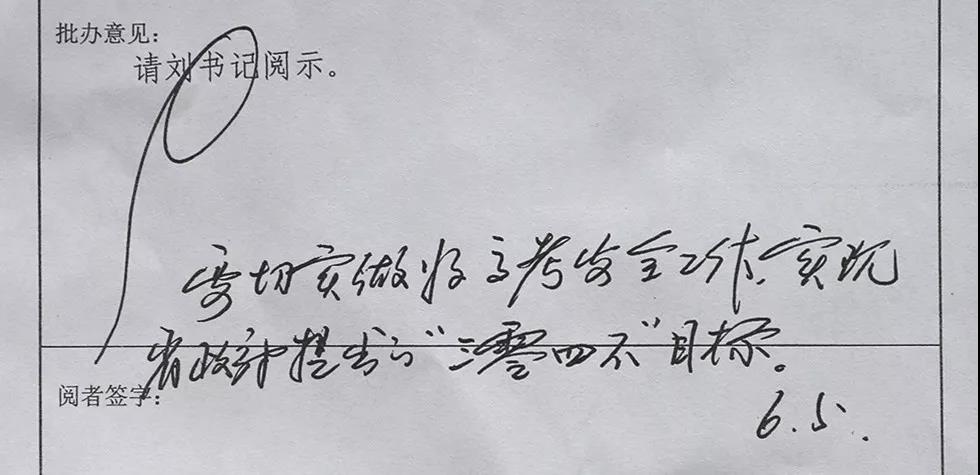 批办意见：
请刘书记阅示。
要切实做好高考安全工作，实现
省政府提出的“三零四不”目标。
阅者签字：
6.5.